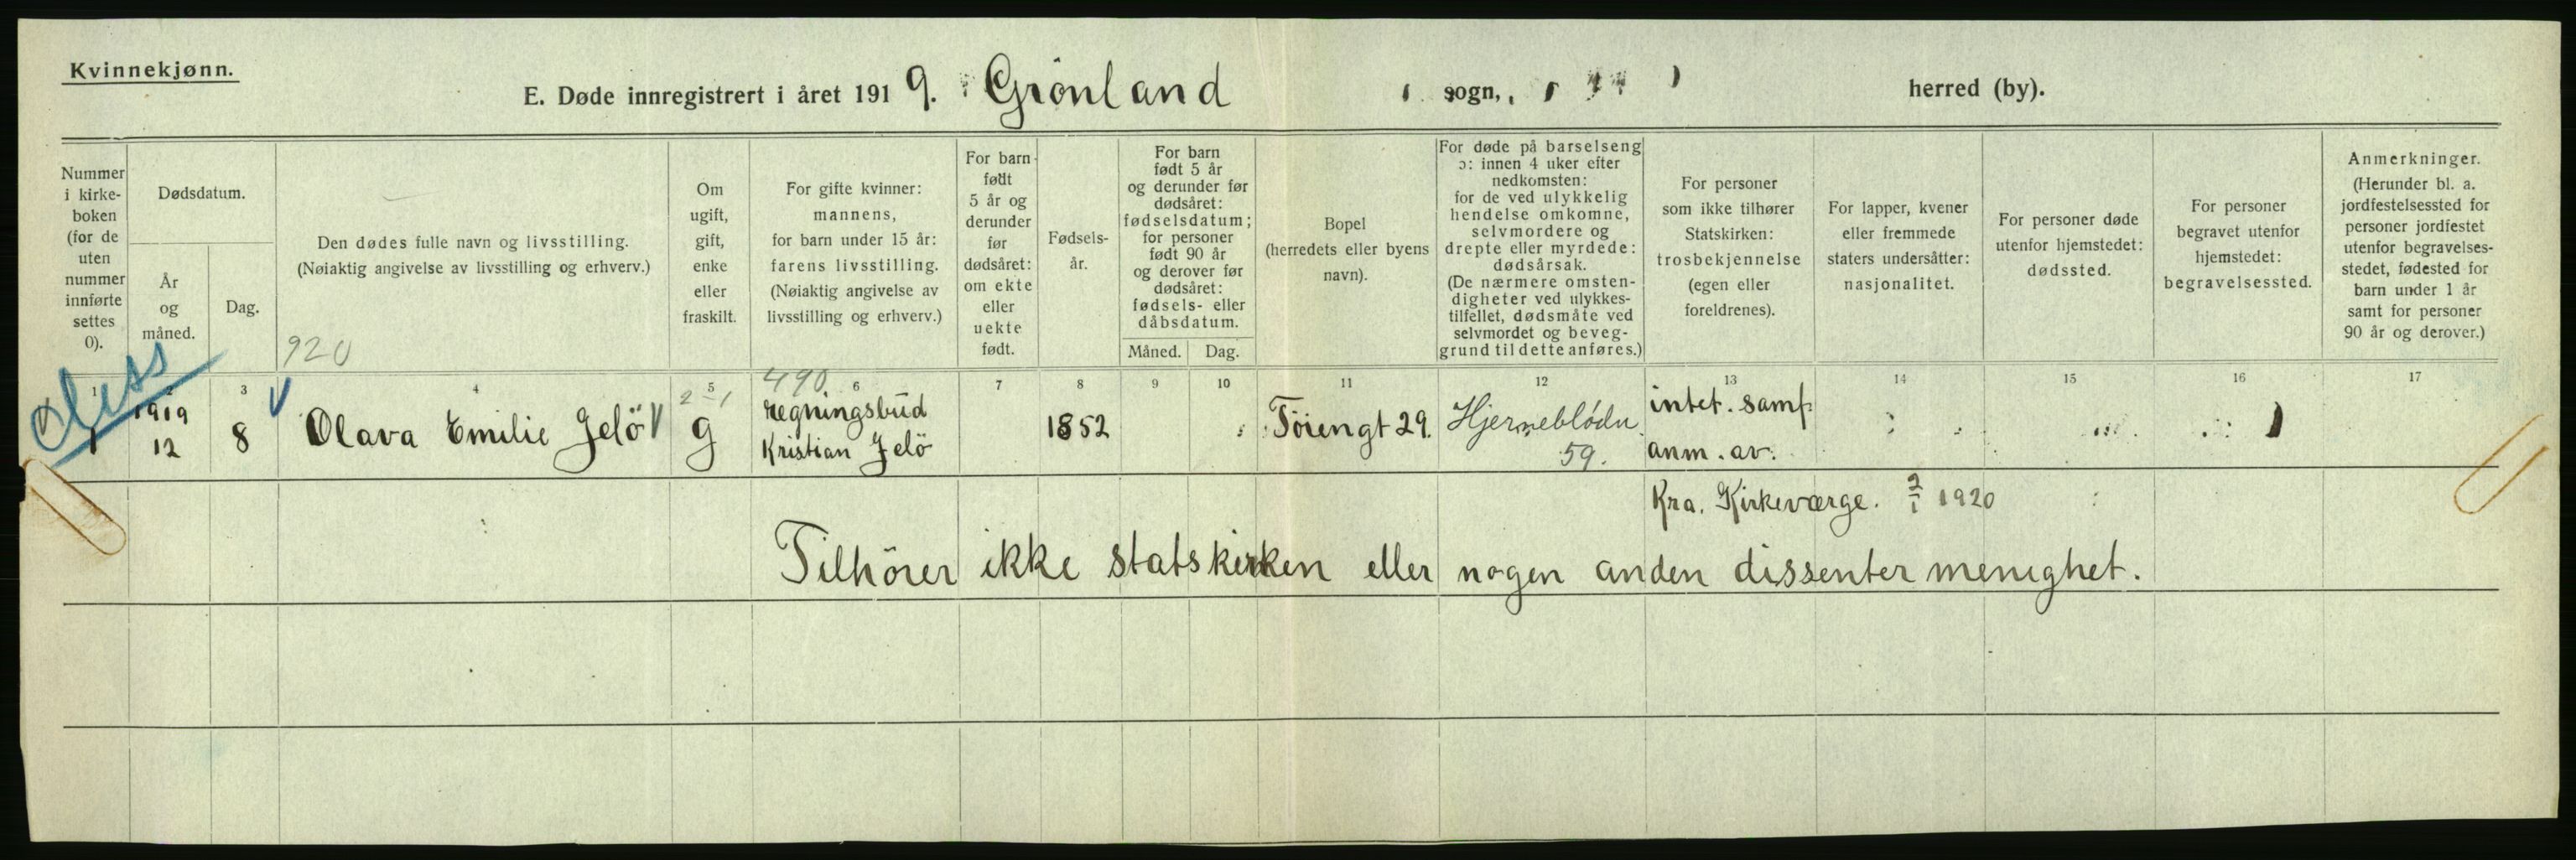 Kvinnekjønn.
E. Døde innregistrert i året 1919. Grönland sogn, herred (by).
Nummer
i kirke-
boken
(for de
uten
nummer
innførte
settes
0).
Dødsdatum.
År
og
måned.
Dag.
Den dødes fulle navn og livsstilling.
(Nøiaktig angivelse av livsstilling og erhverv.)
920
Om
ugift,
gift,
enke
eller
fraskilt.
For gifte kvinner:
mannens,
for barn under 15 år:
farens livsstilling.
(Nøiaktig angivelse av
livsstilling og erhverv.)
For barn
født
5 år og
derunder
før
dødsåret:
om ekte
eller
uekte
født.
Fødsels-
år.
For barn
født 5 år
og derunder før
dødsåret:
fødselsdatum;
for personer
født 90 år
og derover før
dødsåret:
fødsels- eller
dåbsdatum.
Måned. Dag.
Bopel
(herredets eller byens
navn).
For døde på barselseng
ɔ: innen 4 uker efter
nedkomsten:
for de ved ulykkelig
hendelse omkomne,
selvmordere og
drepte eller myrdede:
dødsårsak.
(De nærmere omsten-
digheter ved ulykkes-
tilfellet, dødsmåte ved
selvmordet og beveg-
grund til dette anføres.)
For personer
som ikke tilhører
Statskirken:
trosbekjennelse
(egen eller
foreldrenes).
For lapper, kvener
eller fremmede
staters undersåtter:
nasjonalitet.
For personer døde
utenfor hjemstedet:
dødssted.
For personer
begravet utenfor
hjemstedet:
begravelsessted.
Anmerkninger.
(Herunder bl. a.
jordfestelsessted for
personer jordfestet
utenfor begravelses-
stedet, fødested for
barn under 1 år
samt for personer
90 år og derover.)
1 2 3 4 5 6 7 8 9 10 11 12 13 14 15 16 17
Diss
1
1919
12
8
Olava Emilie Jelö
2-1
g
490
regningsbud
Kristian Jelö
1852
Töiengt 29.
Hjerneblödn.
59.
intet. samf.
anm. av.
Kra. Kirkeværge. 2/1 1920
Tilhörer ikke statskirken eller nogen anden dissenter menighet.